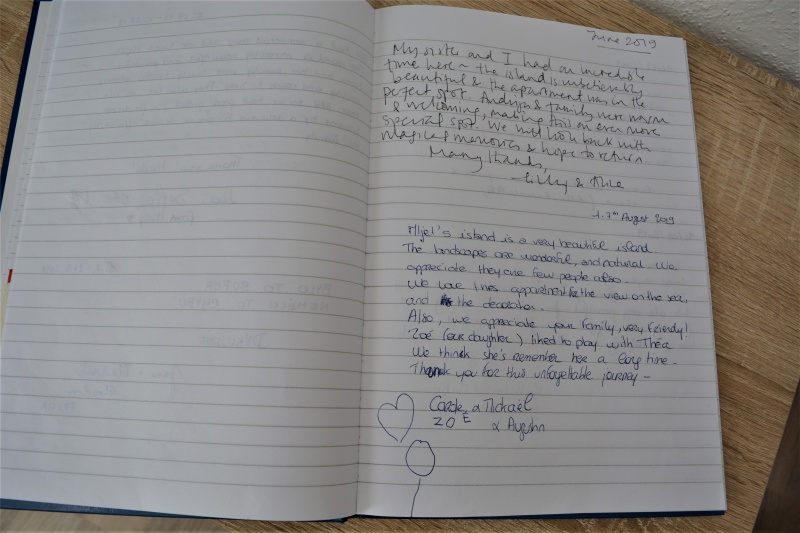 June 2019
My sister and I had an incredible
time here ~ the island is unbelievably
beautiful & the apartment was in the
perfect spot. & family were warm
& welcoming, making this an even more
special spot. We will look back with
magical memories & hope to return.
Many thanks,
& Alice
1-7th August 2019
island is a very beautiful island
The landscapes are wonderful, and natural. We
appreciate they are few people also.
We love this appartment for the view on the sea,
and the decoration.
Also, we appreciate your family, very friendly!
Zoé (our daughter) liked to play with Théa
We think she's remember her a long time.
Thank you for this unforgettable journey -
Carole & Mickaël
ZOE & Augustin